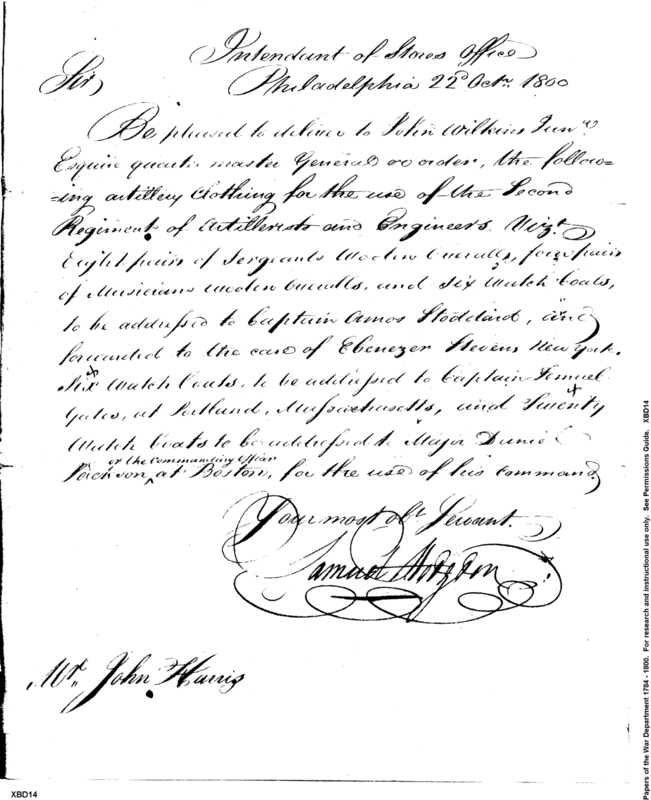 Intendant of Stores Office
Sir, Philadelphia 22d Octr. 1800
Be pleased to deliver to John Wilkins Junr.
Esquire quarter master General or order, the follow=
=ing artillery Clothing for the use of the Second
Regiment of Artillerists and Engineers. Vizt.
Eight pairs of Sergeants Woolen Overalls, four pairs
of Musicians woolen overalls, and six Watch Coats,
to be addressed to Captain Amos Stoddard, and
forwarded to the care of Ebenezer Stevens New York.
Six Watch Coats, to be addressed to Captain Samuel
Gates, at Portland, Massachusetts, and Twenty
Watch Coats to be addressed to Major Daniel
or the Commanding Officer
Jackson ^ at Boston, for the use of his command.
Your most obt. Servant.
Samuel Hodgdon
Mr. John Harris
XBD14
Papers of the War Department 1784 - 1800. For research and instructional use only. See Permissions Guide. XBD14